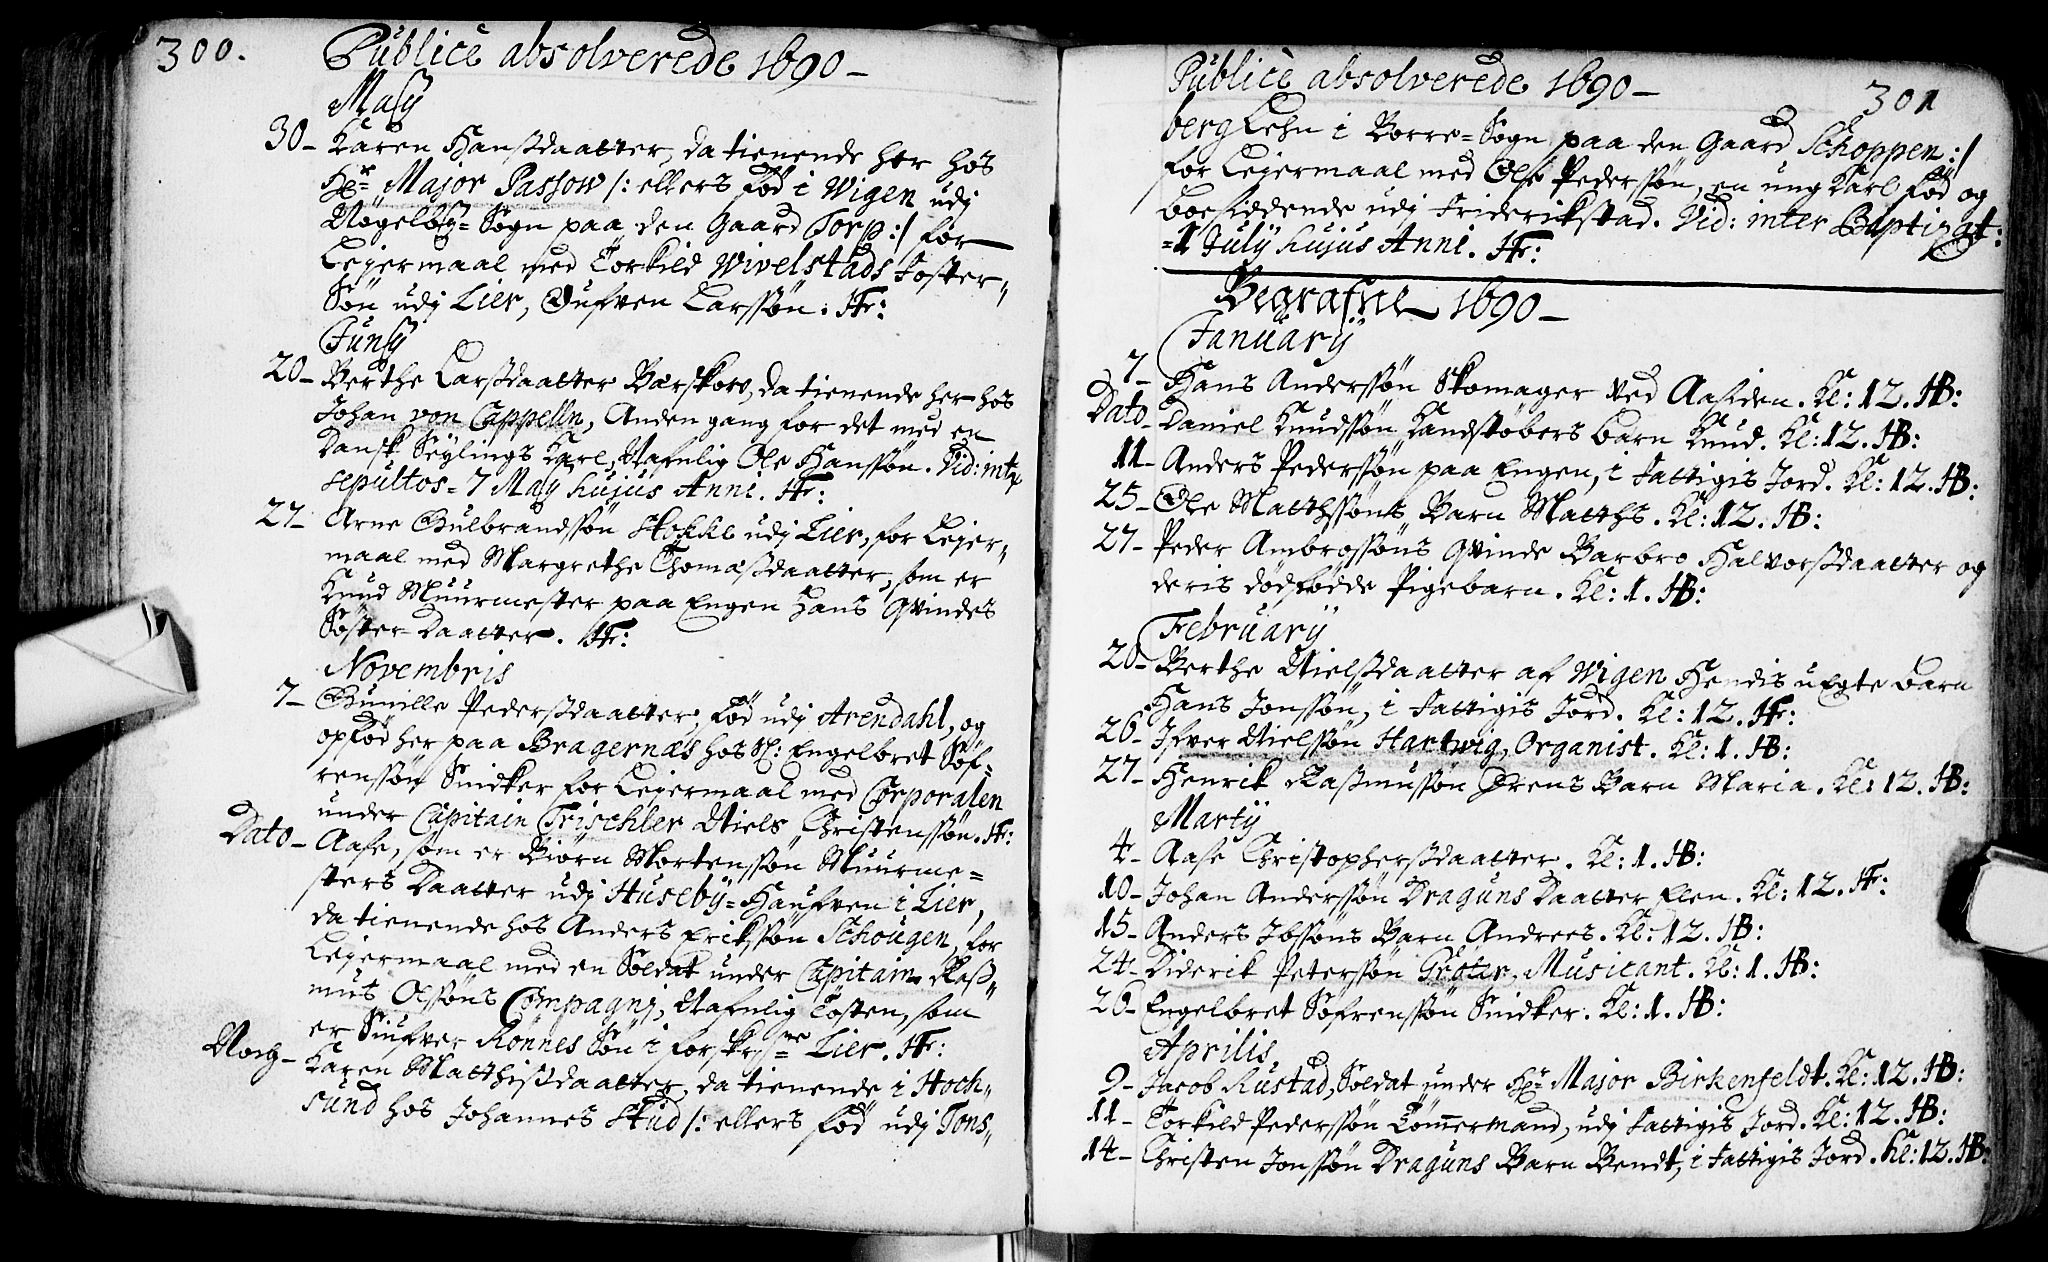 300.
Publicè absolverede 1690 –
Maÿ
30 – Karen Hanssdaatter, da tienende her hos
Hr. Major Passow /: ellers fød i Wigen udj
Nøgelbÿ-Sogn paa den Gaard Torp :/ for
Lejermaal med Torkild Wivelstads Foster-
Søn udj Lier, Gufven Larssøn. Hr:
Junÿ
20 – Berthe Larssdaatter Barskow, da tienende her hos
Johan von Cappelln, Anden gang for det med en
Dansk Seÿlings Karl, Nafnlig Ole Hanssøn. Vid: inter
sepultos = 7 Maÿ hujus Anni. Hr:
27 – Arne Gulbrandssøn Hokkl udj Lier, for Lejer-
maal med Margrethe Thomassdaatter, som er
Knud Muurmester paa Engen Hans Qvindes
Søster-Daatter. Hr:
Novembris
7 – Gunille Pederssdaatter, fød udj Arendahl, og
opfød her paa Bragernæs hos Sl: Engelbret Søf-
renssøn Snidker for Lejermaal med Corporalen
under Capitain Trischler Niels Christenssøn. Hr:
Dato – Aase, som er Biørn Mortenssøn Muurme-
sters Daatter udj Husebÿ-Haufven i Lier,
da tienende hos Anders Erikssøn Schougen, for
Lejermaal med en Soldat under Capitain Rass-
mus Olssøns Compagnj, Nafnlig Tosten, som
er Siufver Rønnes Søn i forskrefne Lier. Hr:
Noch – Karen Matthissdaatter, da tienende i Hoch-
sund hos Johannes Skud /: ellers fød udj Tøns-
Publicè absolverede 1690 –
301
berg Lehn i Borre-Sogn paa den Gaard Schoppen :/
for Lejermaal med Ole Pederssøn, en ung Karl fød og
boesiddende udj Friderickstad. Vid: inter Baptizat:
= 1 Julÿ hujus Anni. Hr:
Begrafne 1690 –
Januarÿ
7 – Hans Anderssøn Skomager ved Aasiden. Kl: 12. HB:
Dato – Daniel Knudssøn Kandstøbers barn Knud. Kl: 12. HB:
11 – Anders Pederssøn paa Engen, i Fattigis Jord. Kl: 12. HB:
25 – Ole Matthssøns Barn Matths. Kl: 12. HB:
27 – Peder Ambrossøns Qvinde Barbro Halvorssdaatter og
deris dødfødde Pigebarn. Kl: 1. HB:
Februarÿ
20 – Berthe Nielssdaatter af Wigen Hendis uegte barn
Hans Jonssøn, i Fattigis Jord. Kl: 12. Hr:
26 – Ifver Nielssøn Hartwig, Organist. Kl: 1. HB:
27 – Henrik Rasmussøn Ørens Barn Maria. Kl: 12. HB:
Martÿ
4 – Aase Christopherssdaatter. Kl: 1. HB:
10 – Johan Anderssøn Draguns Daatter Elen. Kl: 12. Hr:
15 – Anders Ibssøns Barn Andrees. Kl: 12. HB:
24 – Diderik Peterssøn Grøter, Musicant. Kl: 1. HB:
26 – Engelbret Søfrenssøn Snidker. Kl: 1. HB:
Aprilis
9 – Jacob Rustad, Soldat under Hr Major Birkenfeldt. Kl: 12. HB:
11 – Torkild Pederssøn Tømmermand, udj Fattigis Jord. Kl: 12. HB:
14 – Christen Jonssøn Draguns Barn Bendt, i Fattigis Jord. Kl: 12. HB: